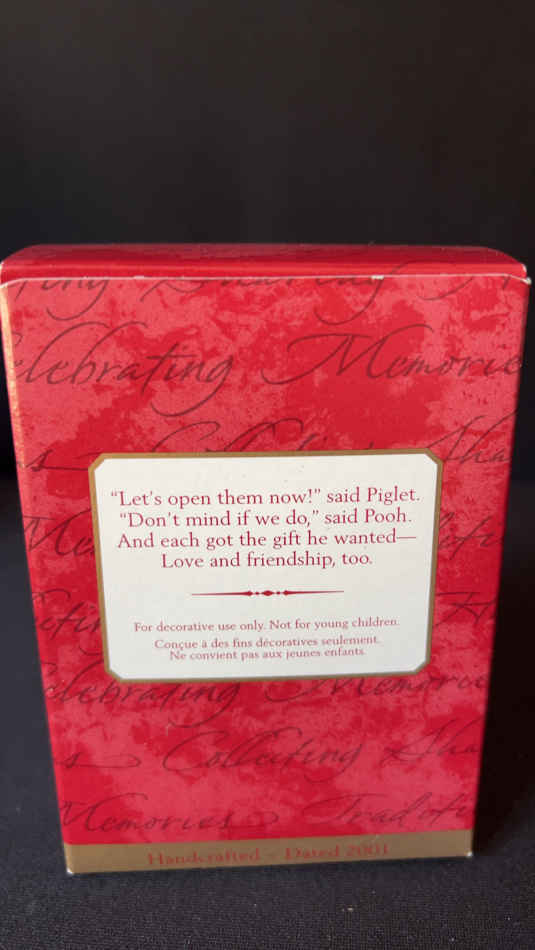 Celebrating Memories
"Let's open them now!" said Piglet.
"Don't mind if we do," said Pooh.
And each got the gift he wanted—
Love and friendship, too.
For decorative use only. Not for young children.
Conçue à des fins décoratives seulement.
Ne convient pas aux jeunes enfants.
Celebrating Memories
Collecting
Memories
Handcrafted - Dated 2001